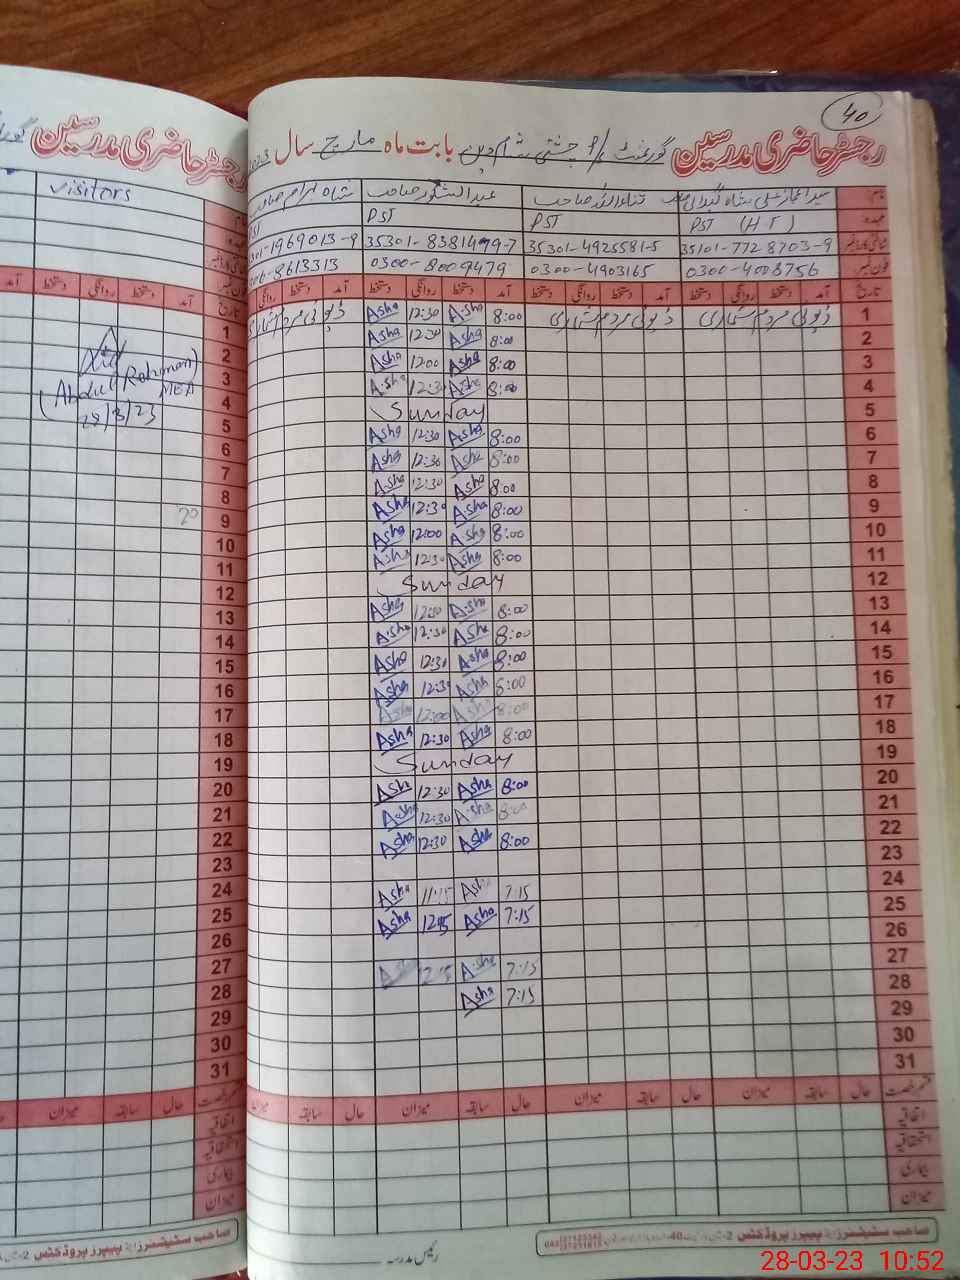 40
رجسٹر حاضری مدرسین گورنمنٹ پ/ا چشتی شام دین بابت ماہ مارچ سال 2023
رجسٹر حاضری مدرسین
نام
عبدالشکور صاحب
visitors
عہدہ PST (H.T) PST PST
شناختی کارڈ نمبر 35101-7728703-9 35301-4925581-5 35301-8381479-7 1969013-9
فون نمبر 0300-4008756 0300-4903165 0300-8009479 8613313
تاریخ آمد دستخط روانگی دستخط آمد دستخط روانگی دستخط آمد دستخط روانگی دستخط آمد دستخط روانگی
1 ڈیوٹی مردم شماری ڈیوٹی مردم شماری 8:00 Asha 12:30 Asha ڈیوٹی مردم شماری
2 8:00 Asha 12:30 Asha
3 8:00 Asha 12:00 Asha
4 8:00 Asha 12:30 Asha
5 Sunday
6 8:00 Asha 12:30 Asha
7 8:00 Asha 12:30 Asha
8 8:00 Asha 12:30 Asha
9 8:00 Asha 12:30 Asha
10 8:00 Asha 12:00 Asha
11 8:00 Asha 12:30 Asha
12 Sunday
13 8:00 Asha 12:30 Asha
14 8:00 Asha 12:30 Asha
15 8:00 Asha 12:30 Asha
16 8:00 Asha 12:30 Asha
17 8:00 Asha 12:00 Asha
18 8:00 Asha 12:30 Asha
19 Sunday
20 8:00 Asha 12:30 Asha
21 8:00 Asha 12:30 Asha
22 8:00 Asha 12:30 Asha
23
24 7:15 Asha 11:15 Asha
25 7:15 Asha 12:15 Asha
26
27 7:15 Asha 12:15 Asha
28 7:15 Asha
29
30
31
حال سابقہ میزان حال سابقہ میزان حال سابقہ میزان
اتفاقیہ
استحقاقیہ
بیماری
میزان
رئیس مدرسہ
صاحب سٹیشنرز اینڈ پیپرز پروڈکٹس
تاریخ آمد دستخط روانگی دستخط آمد
1
2
3
4
5
6
7
8
9
10
11
12
13
14
15
16
17
18
19
20
21
22
23
24
25
26
27
28
29
30
31
(Abdul Rehman)
MEA
28/3/23
20
حال سابقہ میزان
اتفاقیہ
استحقاقیہ
بیماری
میزان
صاحب سٹیشنرز اینڈ پیپرز پروڈکٹس
28-03-23 10:52